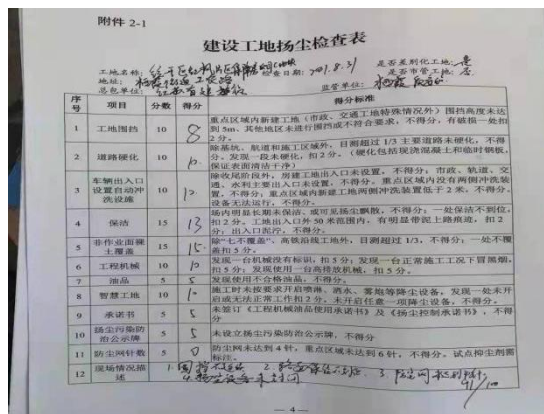 附件 2-1
建设工地扬尘检查表
工地名称: 检查日期: 2021.8.31 是否差别化工地: 是
地址: 是否市管工地: 否
总包单位: 监管单位:
序号 项目 分数 得分 得分标准
1 工地围挡 10 8 重点区域内新建工地（市政、交通工地特殊情况外）围挡高度未达到5m，其他地区未进行围挡或不符合要求，不得分，有破损一处扣2分。
2 道路硬化 10 10 除基坑、航道和施工区域外，目测超过 1/3 主要道路未硬化，不得分，发现一段未硬化，扣2分。（硬化包括现浇混凝土和临时钢板，保证表面清洁干净）
3 车辆出入口设置自动冲洗设施 10 10 除收尾阶段外，房建工地出入口未设置，不得分；市政、轨道、交通、水利主要出入口未设置，不得分。重点区域内没有两侧冲洗装置，不得分；重点区域内新建工地两侧冲洗装置低于2米，不得分。设备无法运行，不得分。
4 保洁 15 13 场内明显长期未保洁、或可见扬尘飘散，不得分；一处保洁不到位，扣2分。工地出入口外50米范围内，有明显带泥上路痕迹，扣2分；出入口泥泞，不得分。
5 非作业面裸土覆盖 15 15 除“七不覆盖”、高铁沿线工地外，目测超过 1/3，不得分；一处不覆盖扣5分。
6 工程机械 10 10 发现一台机械没有标识，扣3分；发现一台正常施工工况下冒黑烟，扣5分；发现使用一台高排放机械，扣5分。
7 油品 5 5 发现使用不合格油品，不得分。
8 智慧工地 10 10 施工时未按要求开启喷淋、洒水、雾炮等降尘设备，发现一处未开启或无法正常工作扣2分。未开启任意一项降尘设备，不得分。
9 承诺书 5 5 未签订《工程机械油品使用承诺书》及《扬尘控制承诺书》，不得分
10 扬尘污染防治公示牌 5 5 未设立扬尘污染防治公示牌，不得分
11 防尘网针数 5 0 防尘网未达到4针，重点区域未达到6针，不得分。试点抑尘剂需标注。
12 现场情况描述 1. 2. 3. 防尘网
4.
91/10
— 4 —